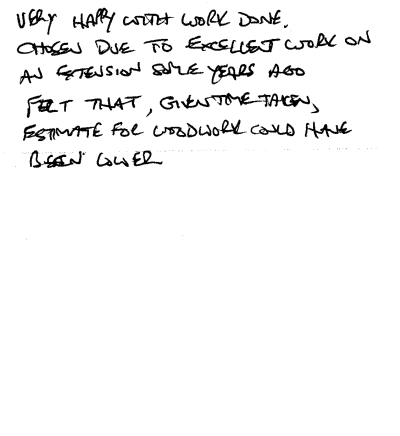 VERY HAPPY WITH WORK DONE.
CHOSEN DUE TO EXCELLENT WORK ON
AN EXTENSION SOME YEARS AGO
FELT THAT, GIVEN TIME TAKEN,
ESTIMATE FOR WOODWORK COULD HAVE
BEEN LOWER